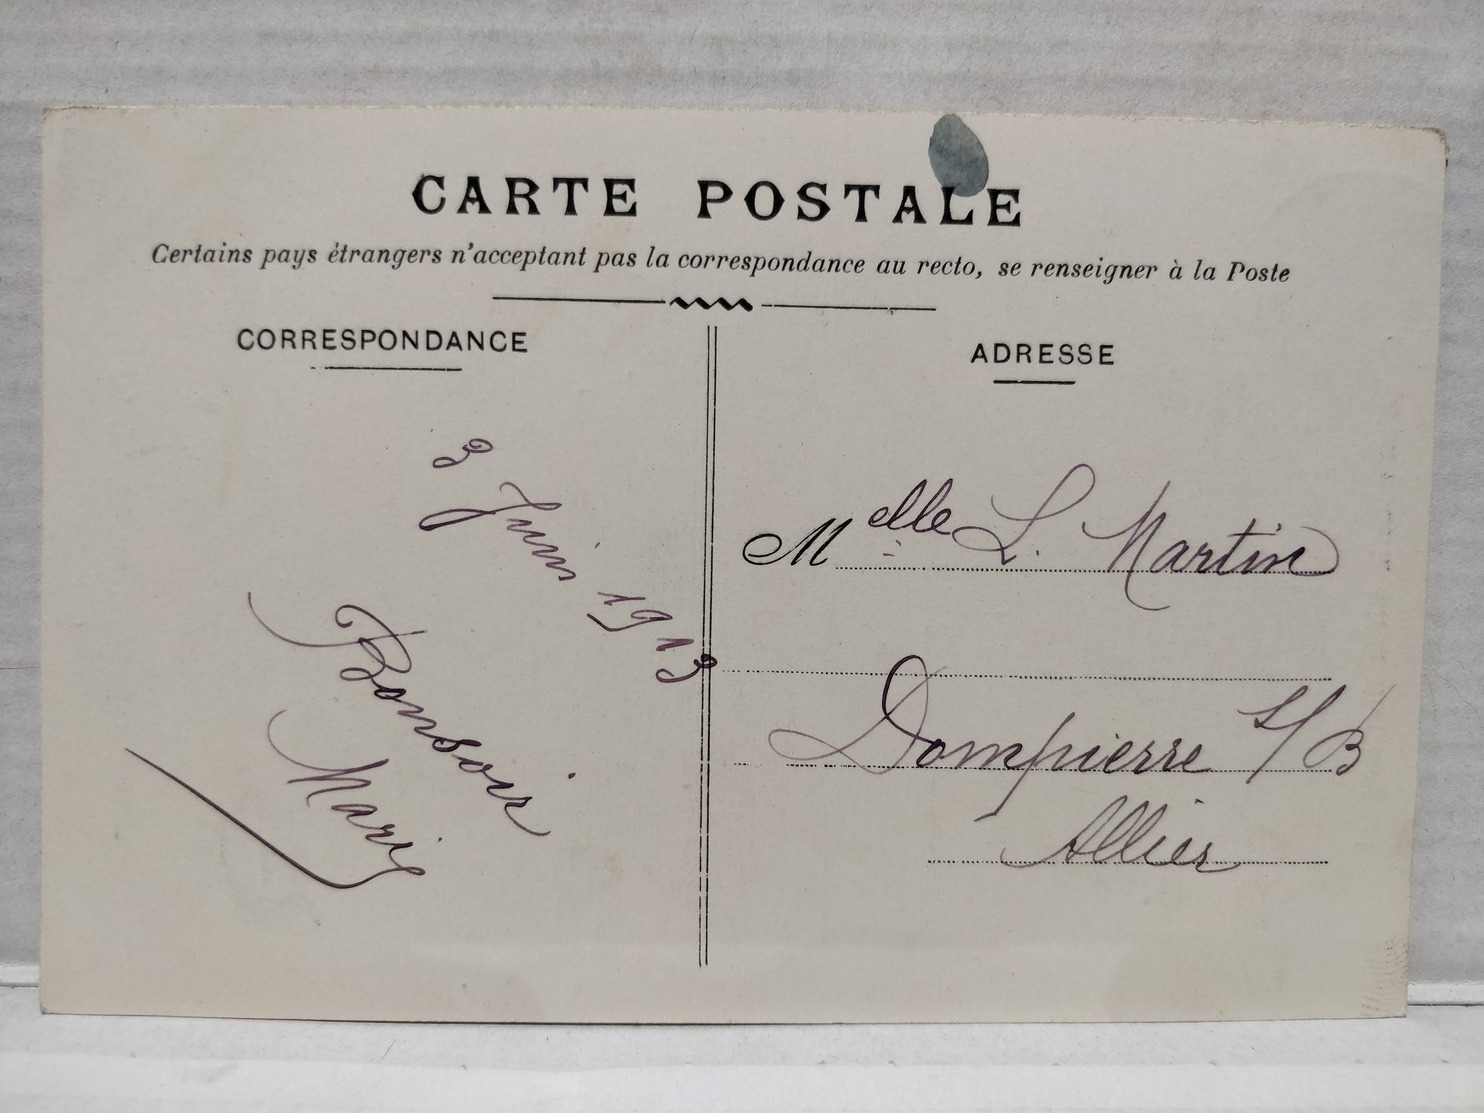 CARTE POSTALE
Certains pays étrangers n'acceptant pas la correspondance au recto, se renseigner à la Poste
CORRESPONDANCE
3 Juin 1913
Bonsoir
Marie
ADRESSE
Melle L. Martin
Dompierre S/B
Allier